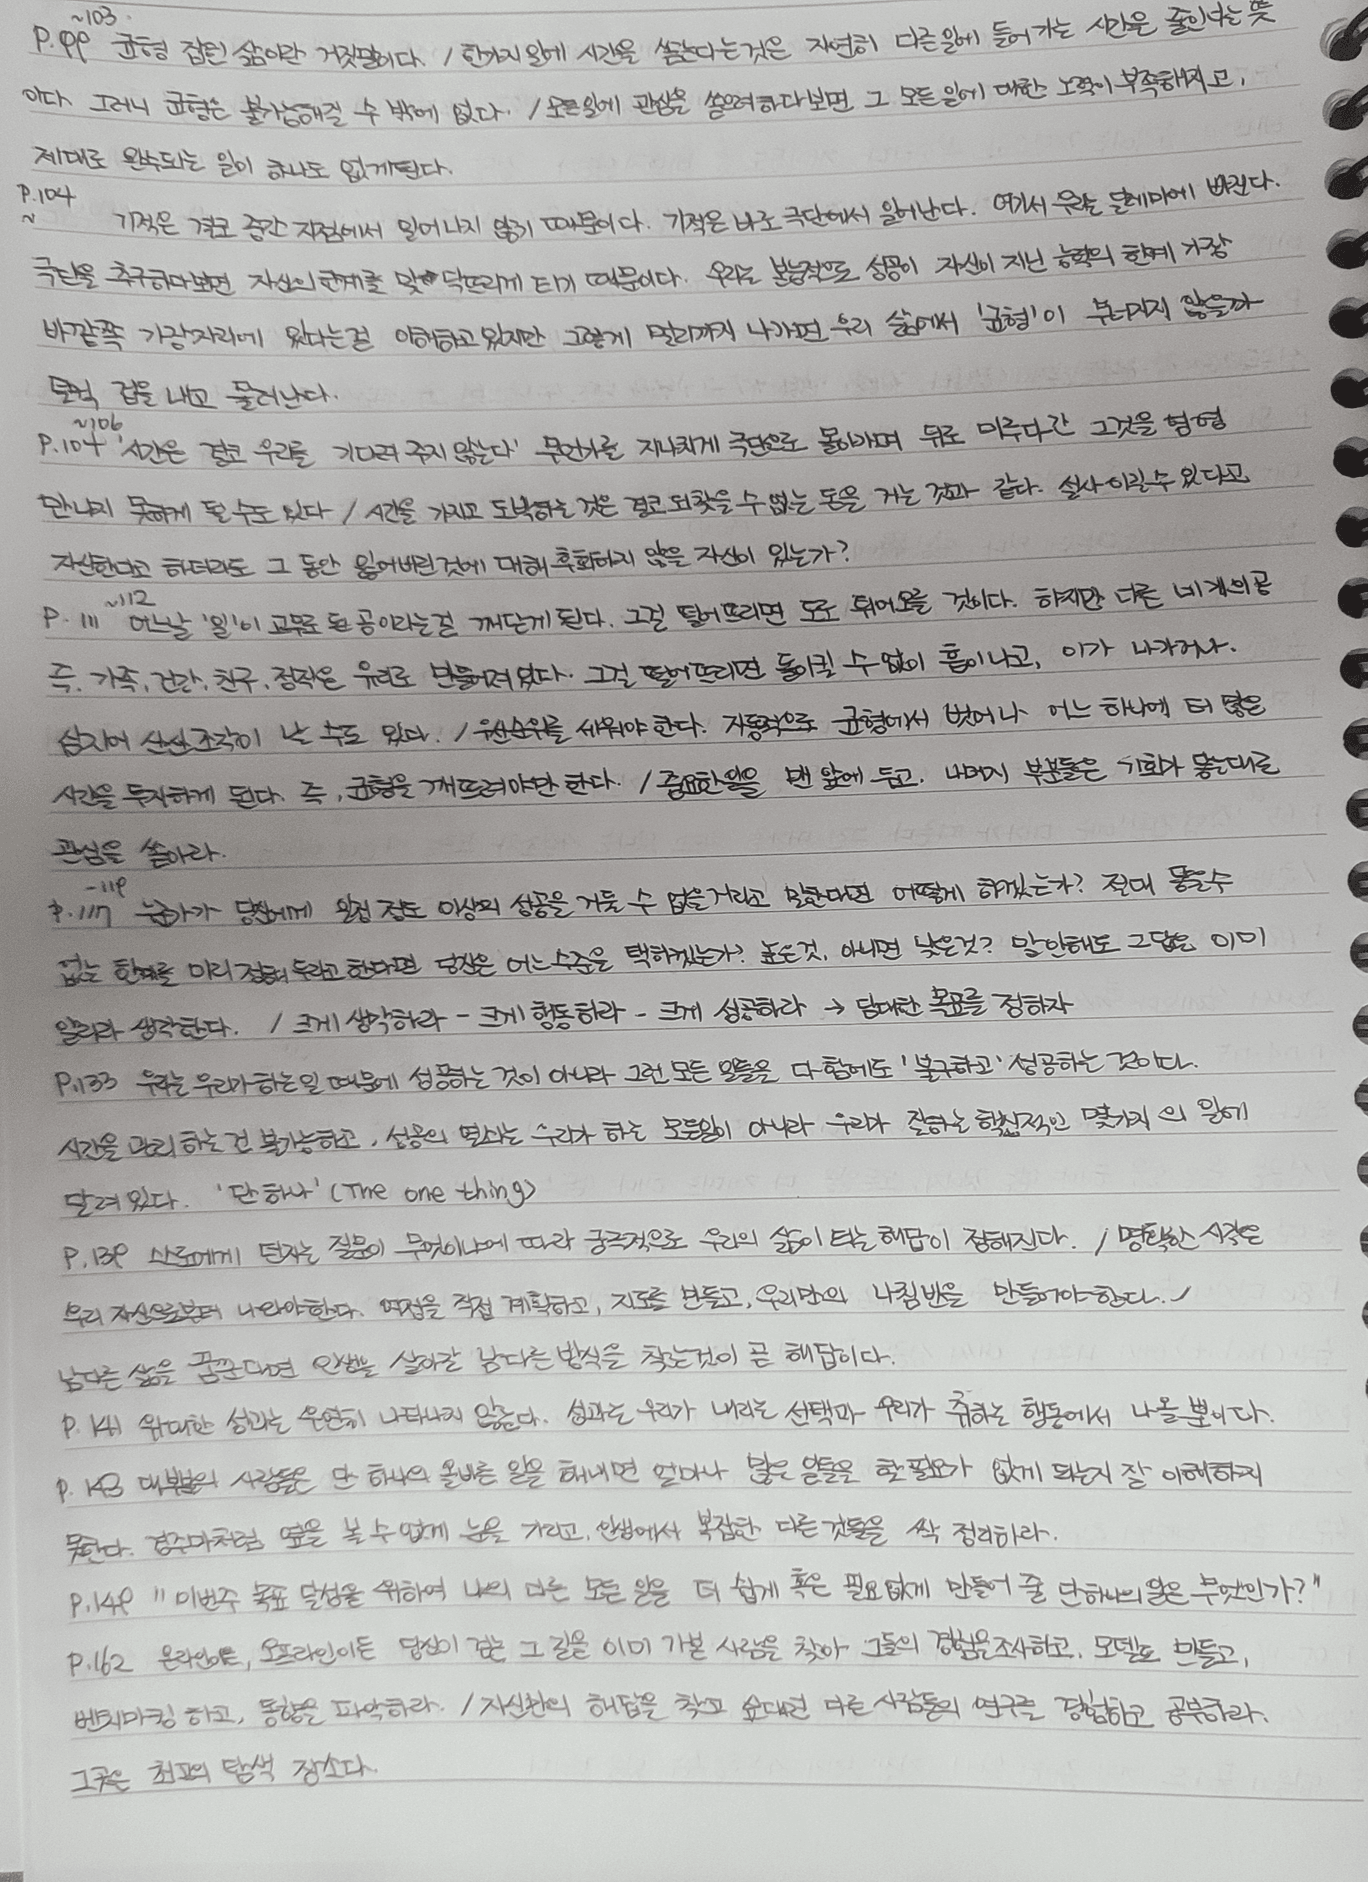 ~103
P.99 균형 잡힌 삶이란 거짓말이다. / 한가지 일에 시간을 쏟는다는 것은 자연히 다른일에 들어가는 시간을 줄인다는 뜻
이다. 그러니 균형은 불가능해질 수 밖에 없다. / 모든일에 관심을 쏟으려하다보면 그 모든 일에 대한 노력이 부족해지고,
제대로 완수되는 일이 하나도 없게된다.
P.104
~ 기적은 결코 중간 지점에서 일어나지 않기 때문이다. 기적은 바로 극단에서 일어난다. 여기서 우리는 딜레마에 빠진다.
극단을 추구하다보면 자신의 한계를 맞닥뜨리게 되기 때문이다. 우리는 본능적으로 성공이 자신이 지닌 능력의 한계 가장
바깥쪽 가장자리에 있다는걸 이해하고 있지만 그렇게 멀리까지 나가면 우리 삶에서 '균형'이 무너지지 않을까
덜컥 겁을 내고 물러난다.
~106
P.104 '시간은 결코 우리를 기다려 주지 않는다' 무언가를 지나치게 극단으로 몰아가며 뒤로 미루다간 그것을 영영
만나지 못하게 될 수도 있다 / 시간을 가지고 도박하는 것은 결코 되찾을 수 없는 돈을 거는 것과 같다. 설사 이길 수 있다고
자신한다고 하더라도 그 동안 잃어버린것에 대해 후회하지 않을 자신이 있는가?
~112
P.111 어느날 '일'이 고무로 된 공이라는걸 깨닫게 된다. 그걸 떨어뜨리면 도로 튀어오를 것이다. 하지만 다른 네 개의 공
즉, 가족, 건강, 친구, 정직은 유리로 만들어져 있다. 그걸 떨어뜨리면 돌이킬 수 없이 흠이나고, 이가 나가거나.
심지어 산산조각이 날 수도 있다. / 우선순위를 세워야 한다. 자동적으로 균형에서 벗어나 어느 하나에 더 많은
시간을 투자하게 된다. 즉, 균형을 깨뜨려야만 한다. / 중요한일을 맨 앞에 두고, 나머지 부분들은 기회가 닿는대로
관심을 쏟아라.
~119
P.117 누군가가 당신에게 일정 정도 이상의 성공을 거둘 수 없을거라고 말한다면 어떻게 하겠는가? 절대 뚫을수
없는 한계를 미리 정해 두라고 한다면 당신은 어느수준을 택하겠는가? 높은것, 아니면 낮은것? 말안해도 그답은 이미
알리라 생각한다. / 크게 생각하라 - 크게 행동하라 - 크게 성공하라 → 담대한 목표를 정하자
P.133 우리는 우리가 하는일 때문에 성공하는 것이 아니라 그런 모든 일들을 다 함에도 '불구하고' 성공하는 것이다.
시간을 관리하는 건 불가능하고, 성공의 열쇠는 우리가 하는 모든일이 아니라 우리가 잘하는 핵심적인 몇가지의 일에
달려있다. '단 하나' (The one thing)
P.139 스스로에게 던지는 질문이 무엇이냐에 따라 궁극적으로 우리의 삶이 되는 해답이 정해진다. / 명확한 시작은
우리 자신으로부터 나와야한다. 여정을 직접 계획하고, 지도를 만들고, 우리만의 나침반을 만들어야한다. /
남다른 삶을 꿈꾼다면 인생을 살아갈 남다른 방식을 찾는것이 곧 해답이다.
P.141 위대한 성과는 우연히 나타나지 않는다. 성과는 우리가 내리는 선택과 우리가 취하는 행동에서 나올 뿐이다.
P.143 대부분의 사람들은 단 하나의 올바른 일을 해내면 얼마나 많은 일들은 할 필요가 없게 되는지 잘 이해하지
못한다. 경주마처럼 옆을 볼 수 없게 눈을 가리고, 인생에서 복잡한 다른 것들을 싹 정리하라.
P.149 "이번주 목표 달성을 위하여 나의 다른 모든 일을 더 쉽게 혹은 필요없게 만들어 줄 단 하나의 일은 무엇인가?"
P.162 온라인이든, 오프라인이든 당신이 걷는 그 길을 이미 가본 사람을 찾아 그들의 경험을 조사하고, 모델로 만들고,
벤치마킹 하고, 동향을 파악하라. / 자신만의 해답을 찾고 싶다면 다른 사람들의 연구를 경험하고 공부하라.
그곳은 최고의 탐색 장소다.